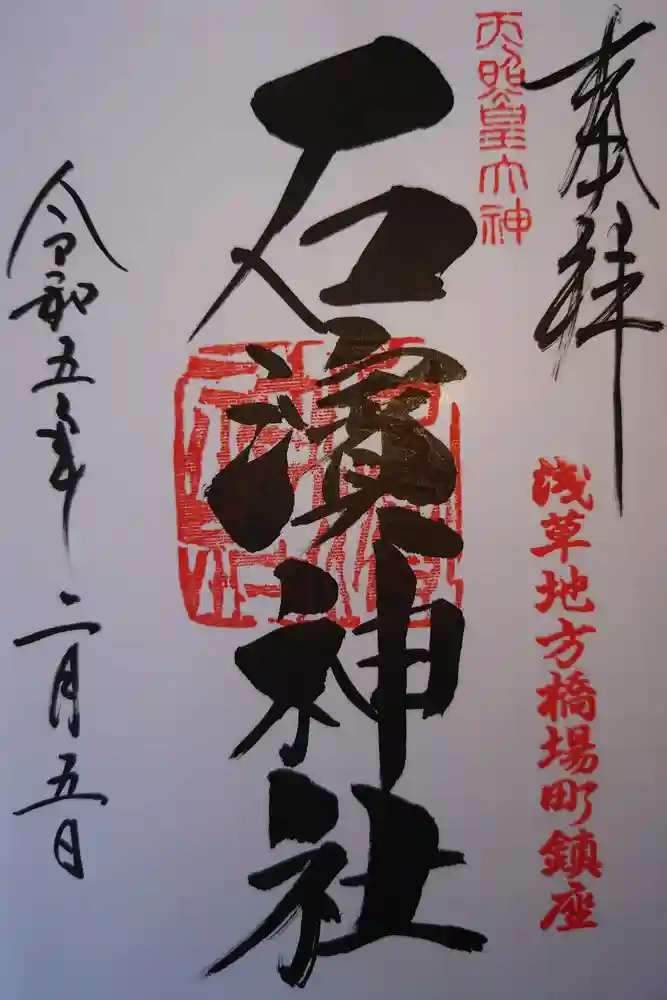 奉拝
天照皇大神
浅草地方橋場町鎮座
石濱神社
令和五年二月五日